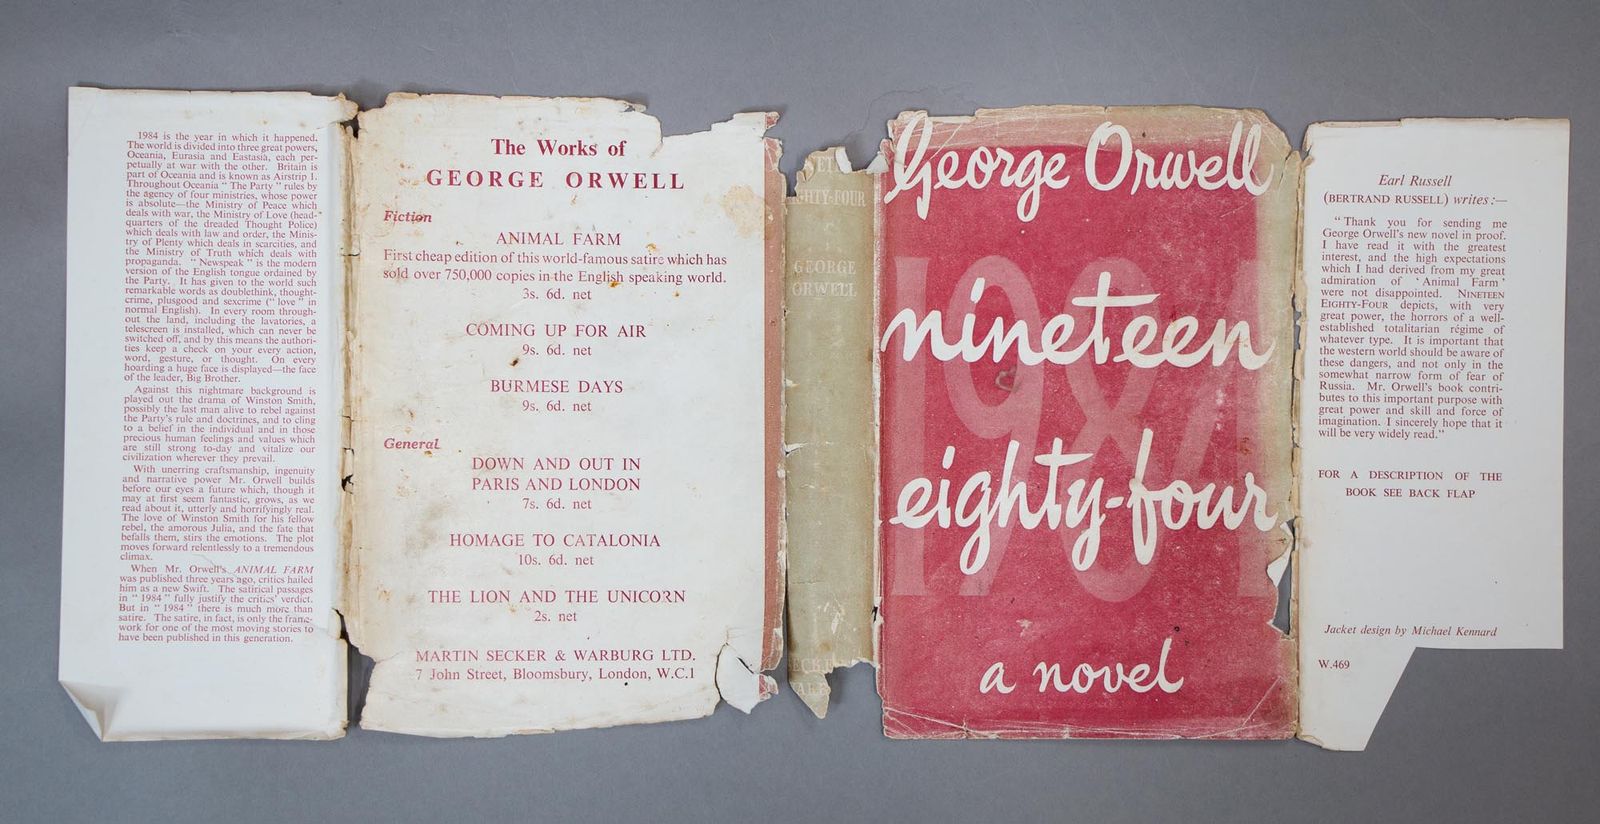 1984 is the year in which it happened.
The world is divided into three great powers,
Oceania, Eurasia and Eastasia, each per-
petually at war with the other. Britain is
part of Oceania and is known as Airstrip 1.
Throughout Oceania “ The Party ” rules by
the agency of four ministries, whose power
is absolute—the Ministry of Peace which
deals with war, the Ministry of Love (head-
quarters of the dreaded Thought Police)
which deals with law and order, the Minis-
try of Plenty which deals in scarcities, and
the Ministry of Truth which deals with
propaganda. “ Newspeak ” is the modern
version of the English tongue ordained by
the Party. It has given to the world such
remarkable words as doublethink, thought-
crime, plusgood and sexcrime (“ love ” in
normal English). In every room through-
out the land, including the lavatories, a
telescreen is installed, which can never be
switched off, and by this means the authori-
ties keep a check on your every action,
word, gesture, or thought. On every
hoarding a huge face is displayed—the face
of the leader, Big Brother.
Against this nightmare background is
played out the drama of Winston Smith,
possibly the last man alive to rebel against
the Party's rule and doctrines, and to cling
to a belief in the individual and in those
precious human feelings and values which
are still strong to-day and vitalize our
civilization wherever they prevail.
With unerring craftsmanship, ingenuity
and narrative power Mr. Orwell builds
before our eyes a future which, though it
may at first seem fantastic, grows, as we
read about it, utterly and horrifyingly real.
The love of Winston Smith for his fellow
rebel, the amorous Julia, and the fate that
befalls them, stirs the emotions. The plot
moves forward relentlessly to a tremendous
climax.
When Mr. Orwell's ANIMAL FARM
was published three years ago, critics hailed
him as a new Swift. The satirical passages
in “ 1984 ” fully justify the critics' verdict.
But in “ 1984 ” there is much more than
satire. The satire, in fact, is only the frame-
work for one of the most moving stories to
have been published in this generation.
The Works of
GEORGE ORWELL
Fiction
ANIMAL FARM
First cheap edition of this world-famous satire which has
sold over 750,000 copies in the English speaking world.
3s. 6d. net
COMING UP FOR AIR
9s. 6d. net
BURMESE DAYS
9s. 6d. net
General
DOWN AND OUT IN
PARIS AND LONDON
7s. 6d. net
HOMAGE TO CATALONIA
10s. 6d. net
THE LION AND THE UNICORN
2s. net
MARTIN SECKER & WARBURG LTD.
7 John Street, Bloomsbury, London, W.C.1
GHTY-FOUR
GEORGE
ORWELL
George Orwell
1984
nineteen
eighty-four
a novel
Earl Russell
(BERTRAND RUSSELL) writes :—
“ Thank you for sending me
George Orwell's new novel in proof.
I have read it with the greatest
interest, and the high expectations
which I had derived from my great
admiration of ‘ Animal Farm ’
were not disappointed. NINETEEN
EIGHTY-FOUR depicts, with very
great power, the horrors of a well-
established totalitarian régime of
whatever type. It is important that
the western world should be aware of
these dangers, and not only in the
somewhat narrow form of fear of
Russia. Mr. Orwell's book contri-
butes to this important purpose with
great power and skill and force of
imagination. I sincerely hope that it
will be very widely read.”
FOR A DESCRIPTION OF THE
BOOK SEE BACK FLAP
Jacket design by Michael Kennard
W.469